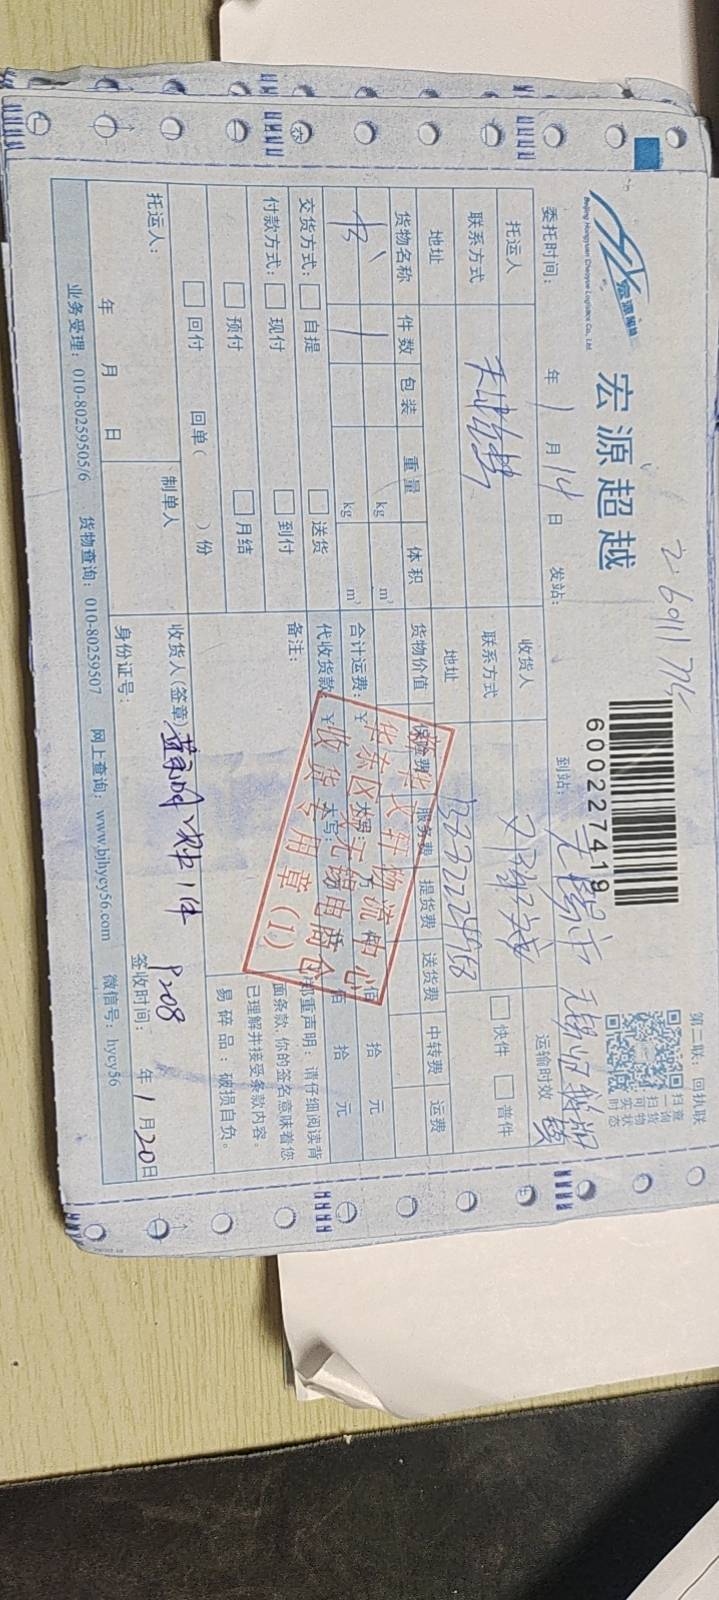 宏源超越
宏源超越
Beijing Hongyuan Chaoyue Logistics Co., Ltd.
600227419
第二联：回执联
扫一扫
查询货物实时状态
委托时间： 年 1 月 14 日 发站： 到站： 无锡市
托运人
收货人
运输时效
联系方式
联系方式
快件 普件
地址
地址
货物名称 件数 包装 重量 体积 货物价值 保险费 服务费 提货费 送货费 中转费 运费
书 1 kg m³
合计运费：¥ 大写： 佰 拾 元
kg m³
代收货款：¥ 大写： 佰 拾 元
交货方式： 自提 送货
付款方式： 现付 到付
预付 月结
回付 回单( )份
备注：
郑重声明：请仔细阅读背
面条款，你的签名意味着您
已理解并接受条款内容。
易碎品：破损自负。
物流中心
华东区
无锡电商仓
收货专用章(1)
托运人：
年 月 日
制单人
收货人(签章)
身份证号：
P208
签收时间： 年 1 月 20 日
业务受理：010-80259505/6 货物查询：010-80259507 网上查询：www.bjhycy56.com 微信号：hycy56